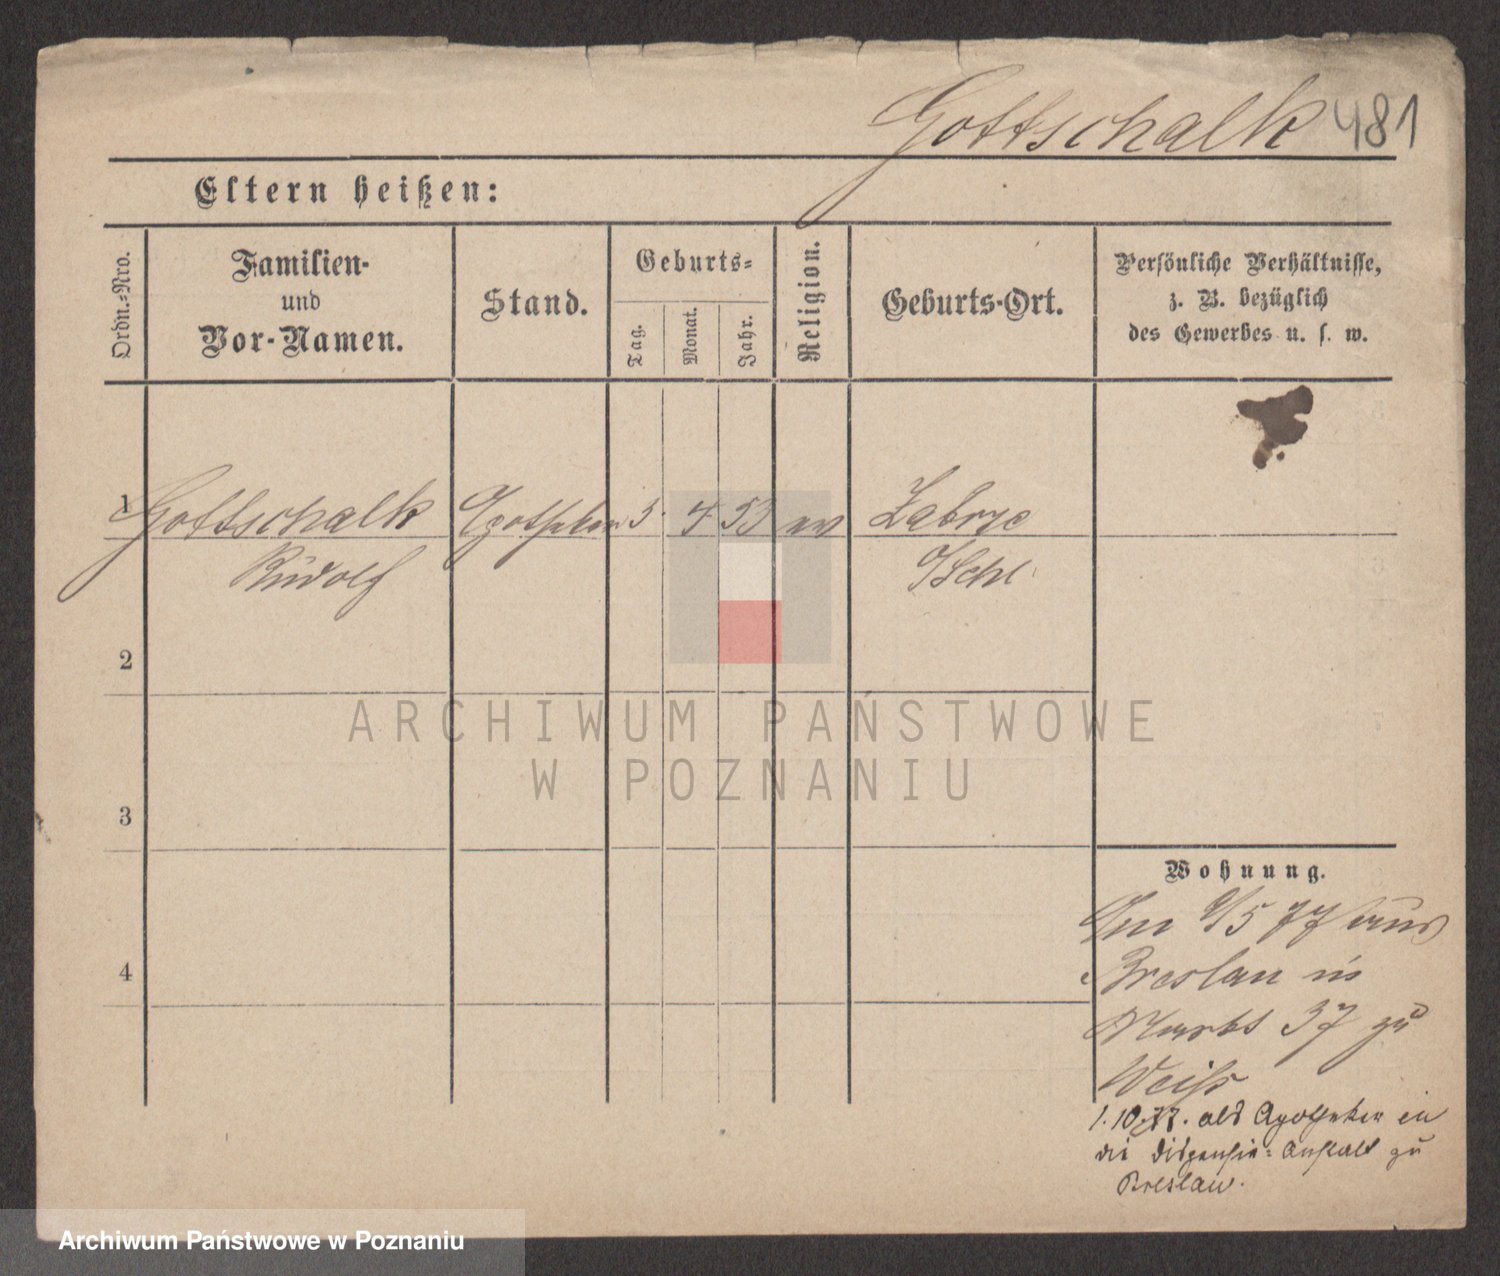 Gottschalk 481
Eltern heißen:
Ordn.-Nro.
Familien-
und
Vor-Namen.
Stand.
Geburts-
Tag.
Monat.
Jahr.
Religion.
Geburts-Ort.
Persönliche Verhältnisse,
z. B. bezüglich
des Gewerbes u. s. w.
1 Gottschalk Apotheker 5 4 53 ev Zabrze
Rudolf O/Schl
2
3
4
ARCHIWUM PAŃSTWOWE
W POZNANIU
Wohnung.
5 77 aus
Breslau in
Markt 37 zu
Weiß
1.10.77. als Apotheker in
die Dispensir-Anstalt zu
Breslau.
Archiwum Państwowe w Poznaniu